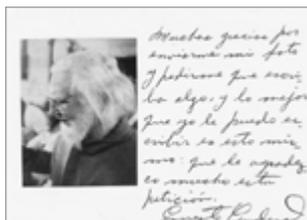 Muchas gracias por
enviarme mi foto
y pedirme que escri-
ba algo, y lo mejor
que yo le puedo es-
cribir es esto mis-
mo: que le agradez-
co mucho esta
petición.